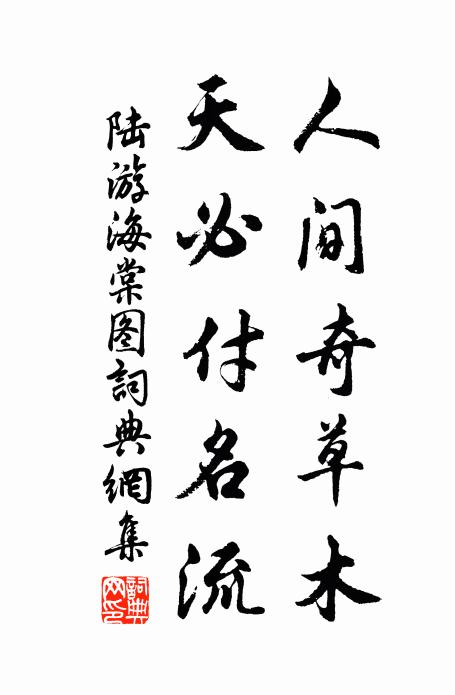 人间奇草木
天必付名流
陆游海棠图詞典網集
詞典网印